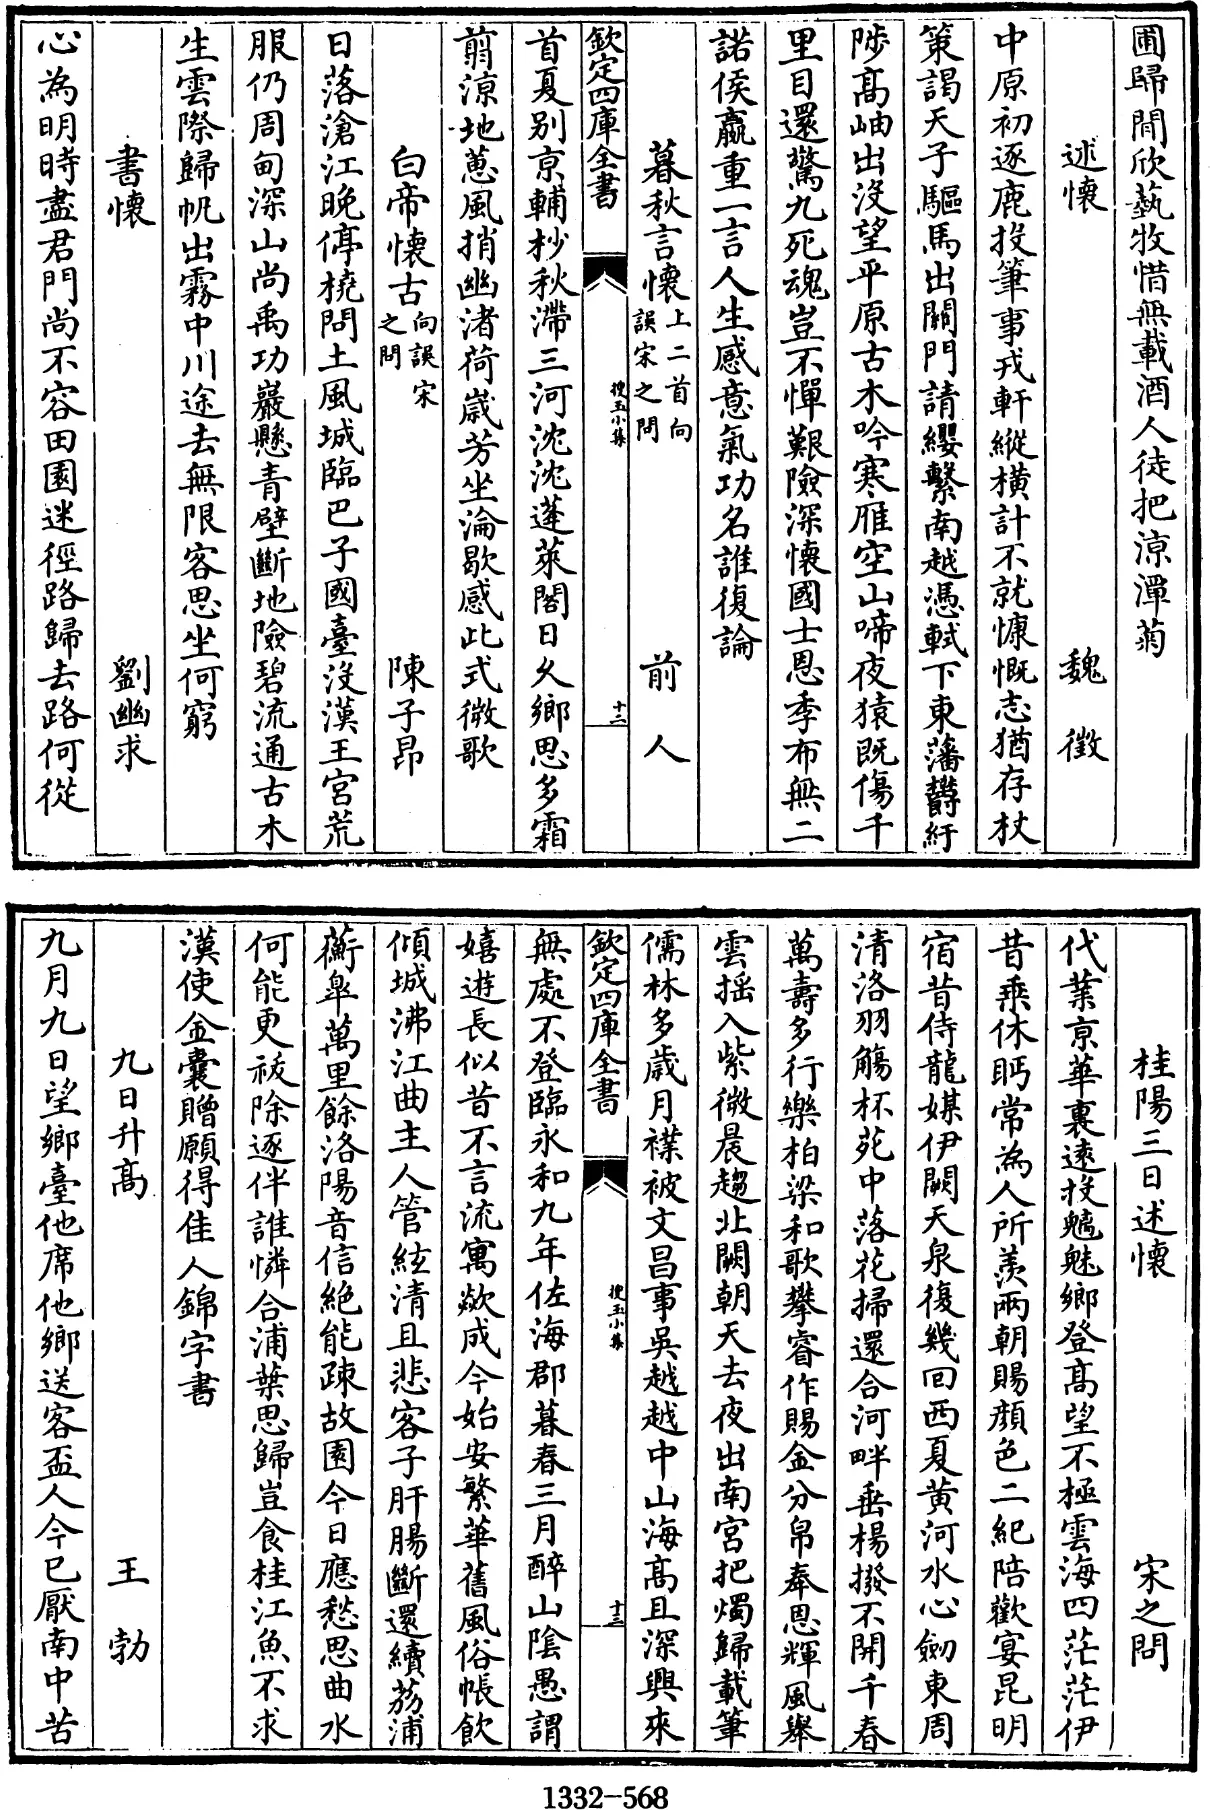 圃歸閒欣藝牧惜無載酒人徒把涼潭菊
述懷 魏徵
中原初逐鹿投筆事戎軒縱橫計不就慷慨志猶存杖
策謁天子驅馬出關門請纓繫南越憑軾下東藩鬱紆
陟高岫出没望平原古木吟寒雁空山啼夜猿既傷千
里目還驚九死魂豈不憚艱險深懷國士恩季布無二
諾侯嬴重一言人生感意氣功名誰復論
暮秋言懷上二首向誤宋之問 前人
欽定四庫全書 搜玉小集 十二
首夏别京輔杪秋滯三河沈沈蓬萊閣日夕鄉思多霜
翦涼地蕙風捎幽渚荷嵗芳坐淪歇感此式微歌
白帝懷古向誤宋之問 陳子昂
日落滄江晚停橈問土風城臨巴子國臺没漢王宮荒
服仍周甸深山尚禹功巖懸青壁斷地險碧流通古木
生雲際歸帆出霧中川途去無限客思坐何窮
書懷 劉幽求
心為明時盡君門尚不容田園迷徑路歸去路何從
桂陽三日述懷 宋之問
代業京華裏遠投魑魅鄉登高望不極雲海四茫茫伊
昔乘休眄常為人所羨兩朝賜顔色二紀陪歡宴昆明
宿昔侍龍媒伊闕天泉復幾回西夏黄河水心劒東周
清洛羽觴杯苑中落花掃還合河畔垂楊撥不開千春
萬壽多行樂柏梁和歌攀睿作賜金分帛奉恩輝風舉
雲揺入紫微晨趨北闕朝天去夜出南宮把燭歸載筆
儒林多歲月襆被文昌事吳越越中山海高且深興來
欽定四庫全書 搜玉小集 十三
無處不登臨永和九年佐海郡暮春三月醉山陰愚謂
嬉遊長似昔不言流寓歘成今始安繁華舊風俗帳飲
傾城沸江曲主人管絃清且悲客子肝腸斷還續荔浦
蘅臯萬里餘洛陽音信絶能疎故園今日應愁思曲水
何能更祓除逐伴誰憐合浦葉思歸豈食桂江魚不求
漢使金囊贈願得佳人錦字書
九日升高 王勃
九月九日望鄉臺他席他鄉送客盃人今已厭南中苦
1332-568